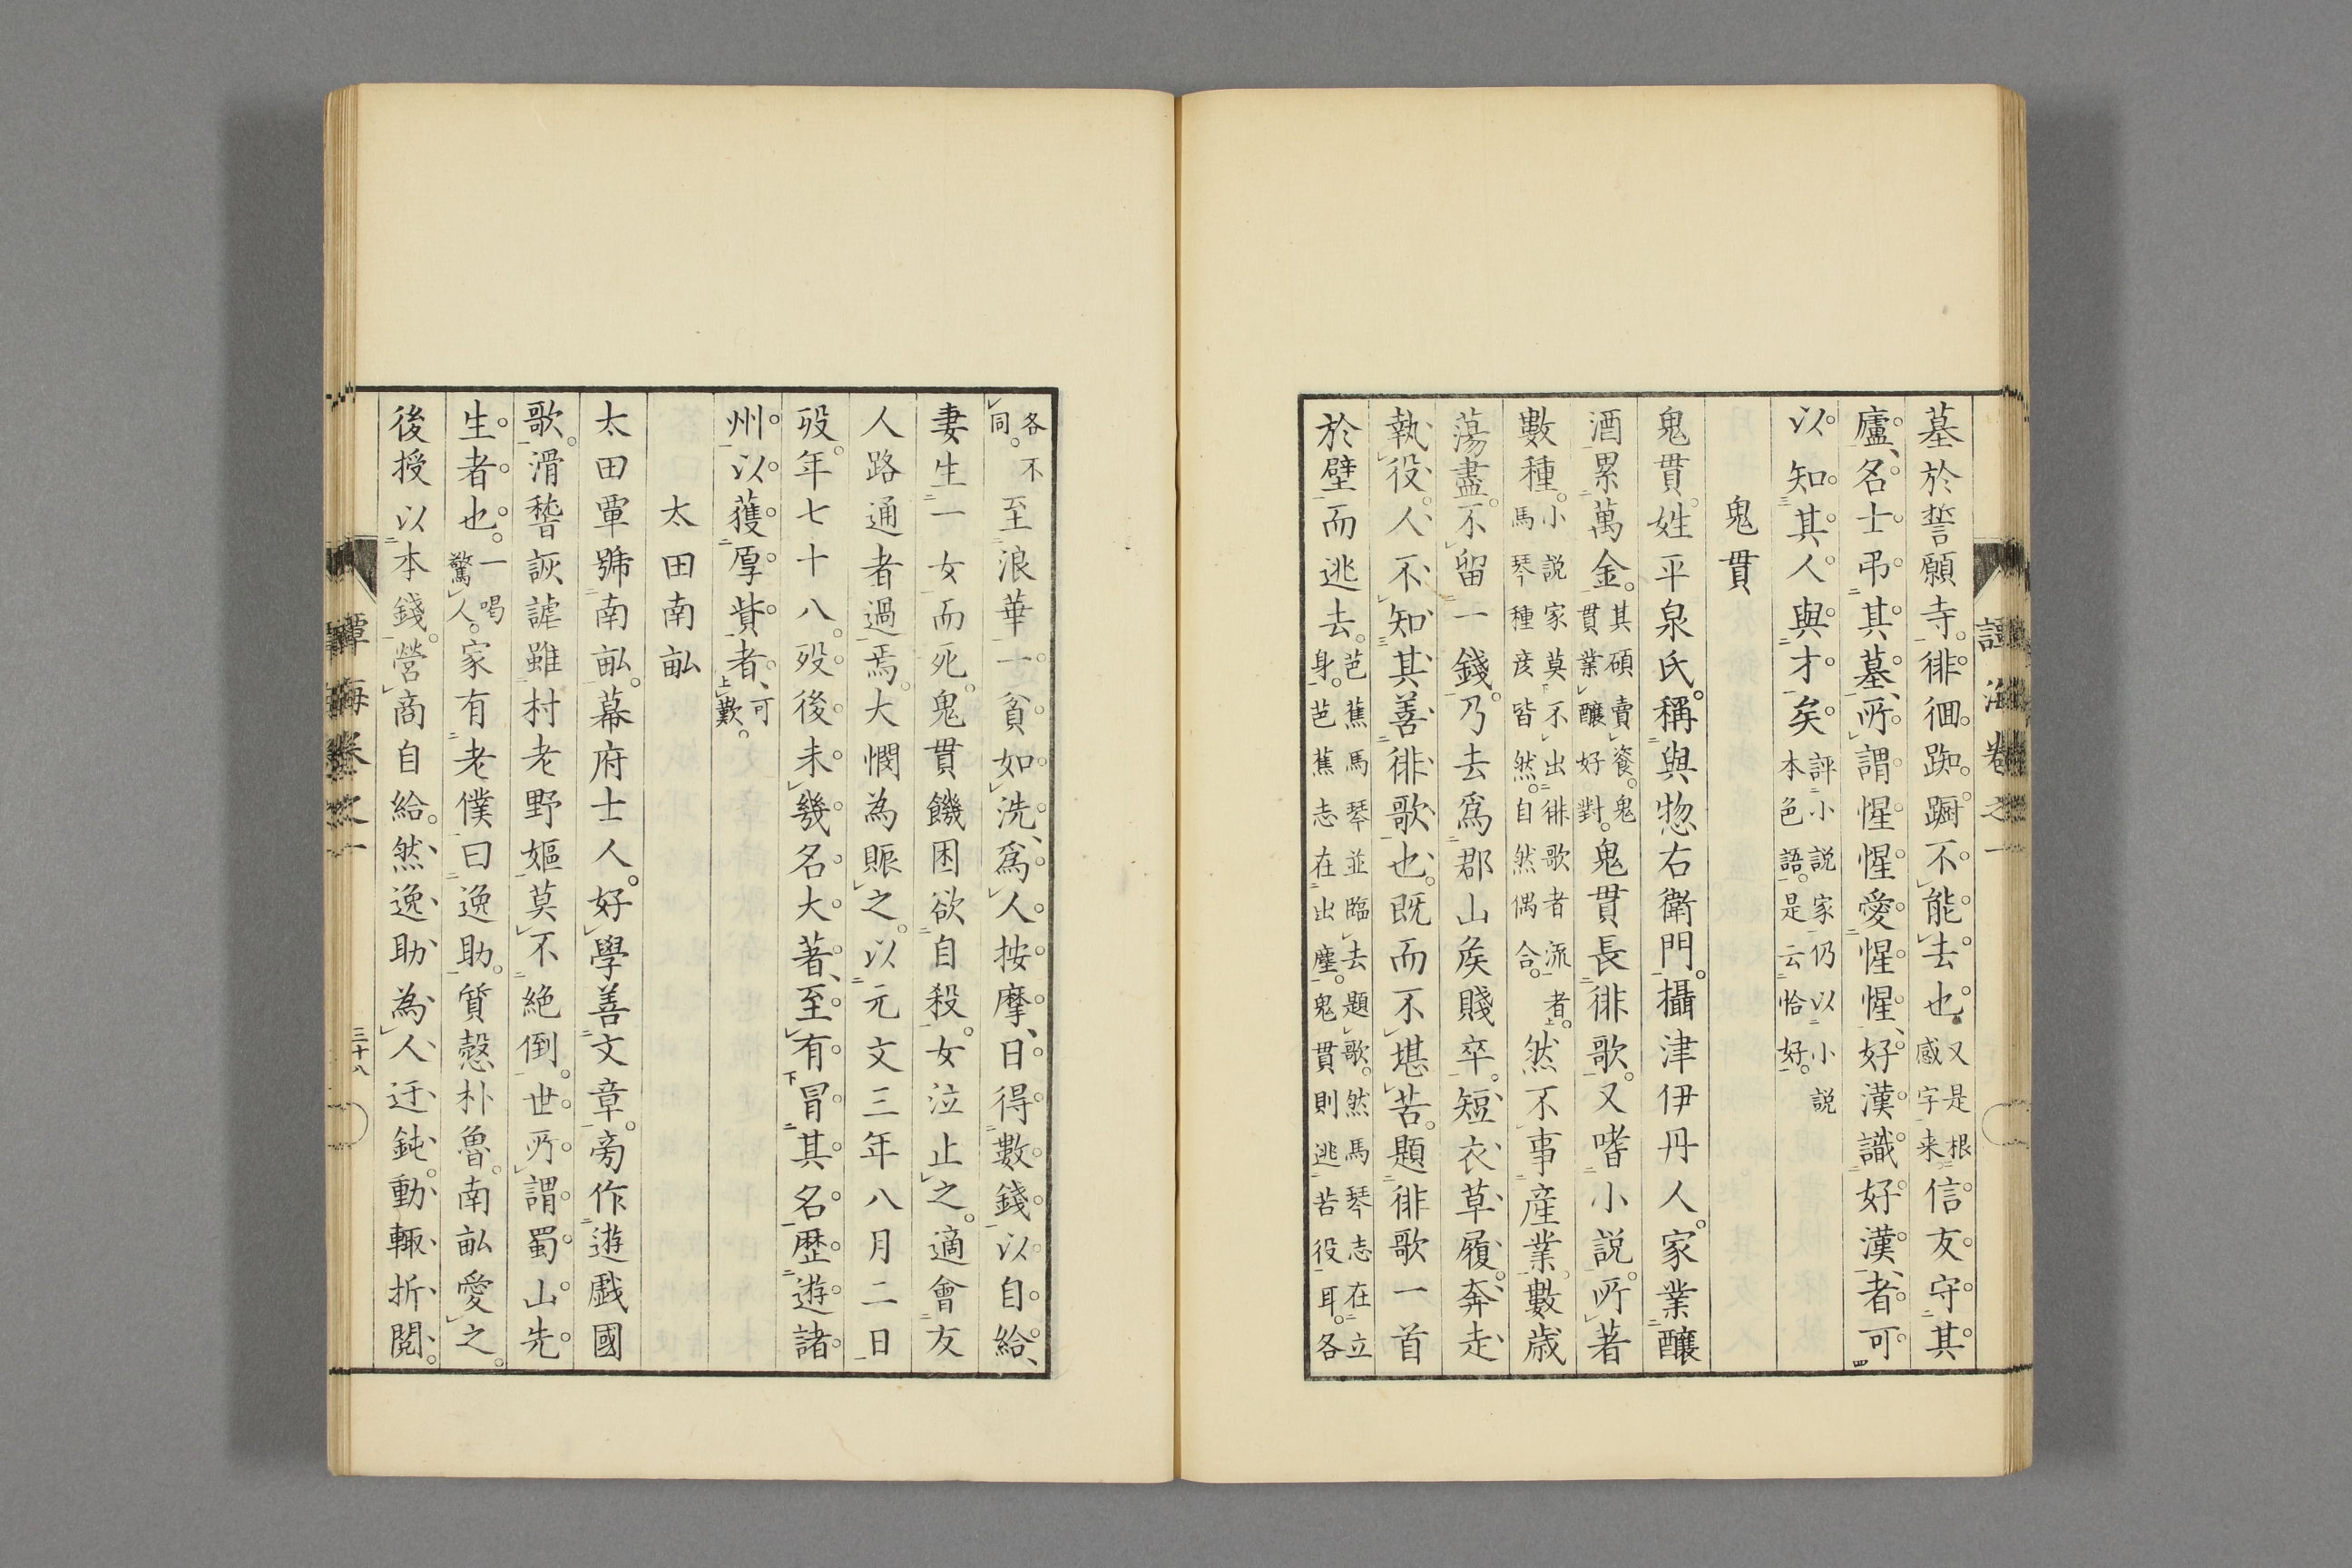 墓於誓願寺。徘徊踟蹰。不能去也。又是根感字来。信友守其
廬、名士弔其墓、所謂惺惺愛惺惺、好漢識好漢、者可
以知其人與才矣。評小説家仍以小説本色語。是云恰好。
鬼貫
鬼貫。姓平泉氏。稱與惣右衛門。攝津伊丹人。家業釀
酒累萬金。其碩賣餈。鬼貫業釀好對。鬼貫長徘歌。又嗜小説。所著
數種。小説家莫不出徘歌者流者。馬琴種彦皆然。自然偶合。然不事産業。數歳
蕩盡。不留一錢。乃去爲郡山矦賤卒。短衣草履。奔走
執役。人不知其善徘歌也。既而不堪苦。題徘歌一首
於壁而逃去。芭蕉馬琴並臨去題歌。然馬琴志在立身。芭蕉志在出塵。鬼貫則逃苦役耳。各
各不同。至浪華。一貧如洗、爲人按摩、日得數錢以自給、
妻生一女而死。鬼貫饑困欲自殺。女泣止之。適會友
人路通者過焉。大憫為賑之。以元文三年八月二日
歿。年七十八。歿後未幾名大著、至有冒其名歴遊諸
州。以獲厚貲者、可歎。
太田南畝
太田覃號南畝。幕府士人。好學善文章。旁作遊戯國
歌。滑稽詼謔雖村老野嫗莫不絶倒。世所謂蜀山先
生者也。一喝驚人。家有老僕曰逸助。質慤朴魯。南畝愛之。
後授以本錢。營商自給。然逸助為人迂鈍。動輙折閲。
譚海卷之一
三十八
譚海卷之一